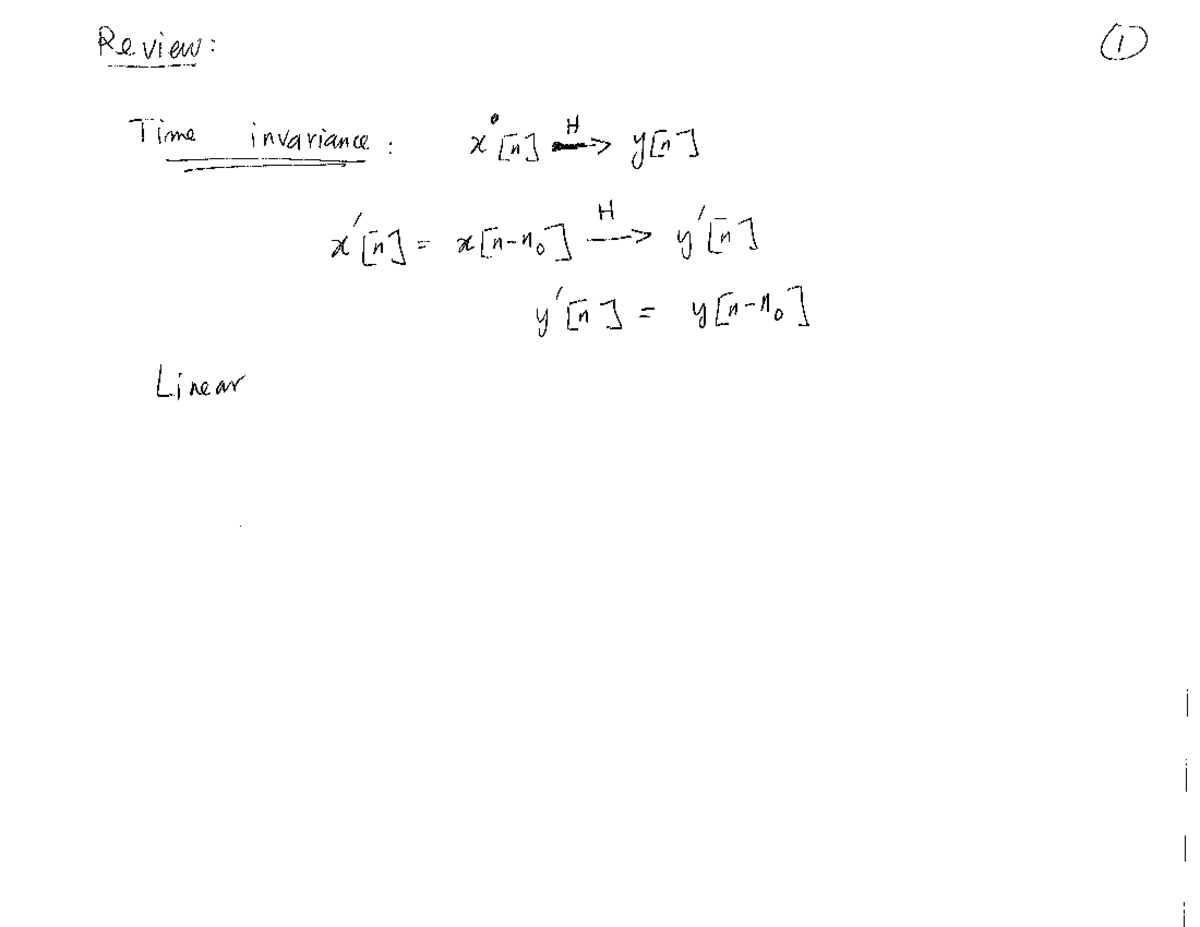 Review: ①
Time invariance: x[n] H→ y[n]
x′[n] = x[n-n₀] H→ y′[n]
y′[n] = y[n-n₀]
Linear